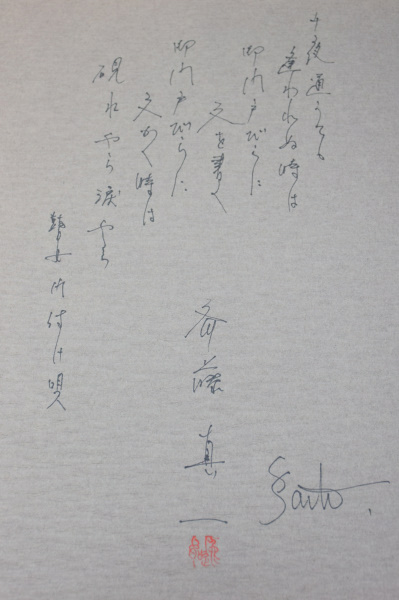 千夜通うても
逢われぬ時は
御門戸びらに
文を書く
御門戸びらに
文かく時は
硯水やら涙やら
瞽女門付け唄
斎藤真一
Saito.